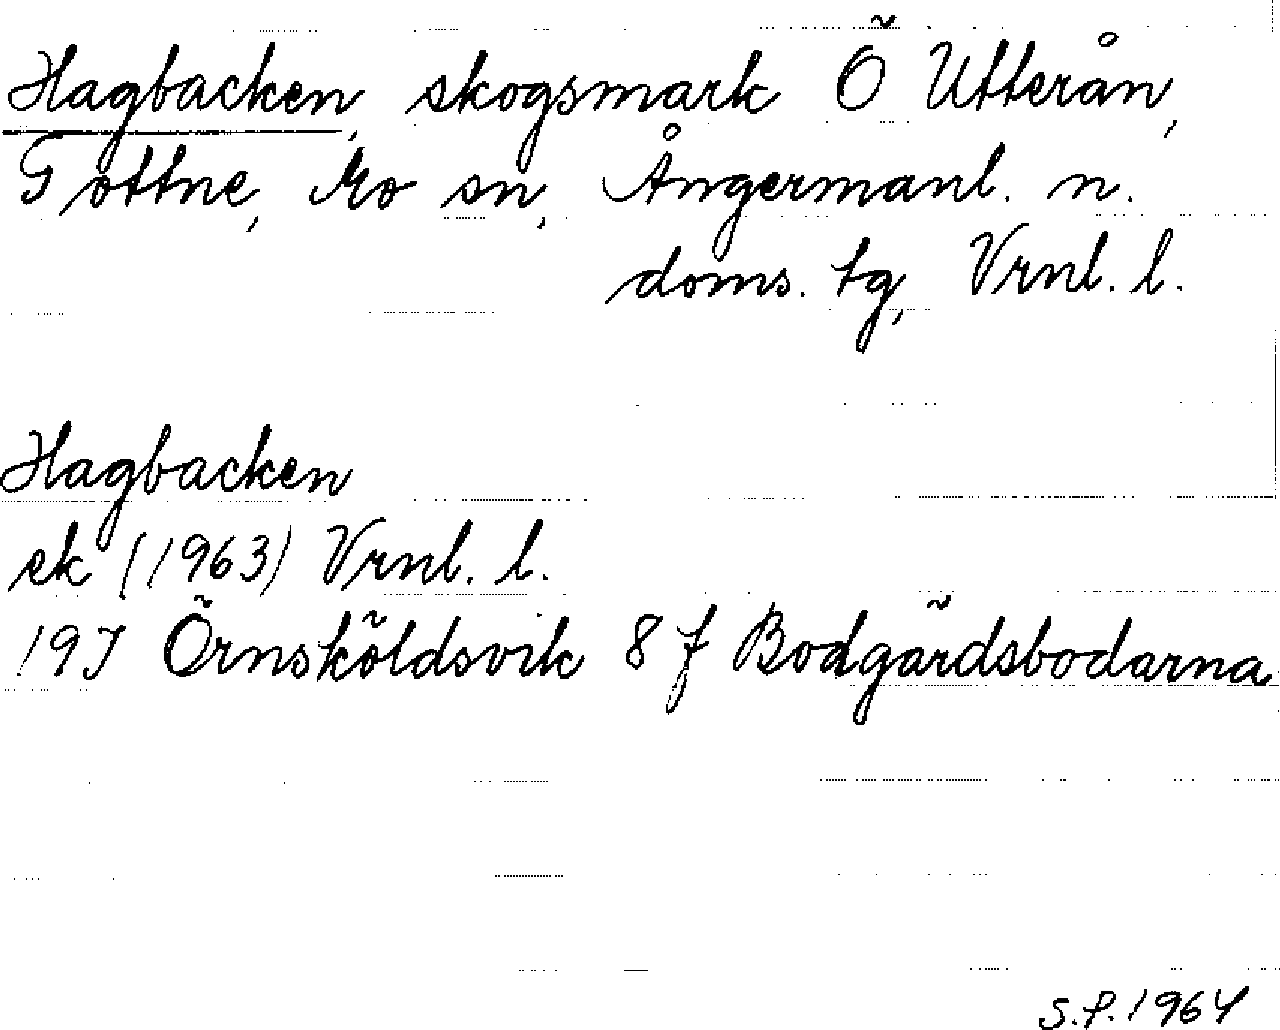 Hagbacken, skogsmark Ö Utterån,
Gottne, Mo sn, Ångermanl. n.
doms. tg, Vrnl. l.
Hagbacken
ek (1963) Vrnl. l.
19J Örnsköldsvik 8 f Bodgärdsbodarna
S.P. 1964